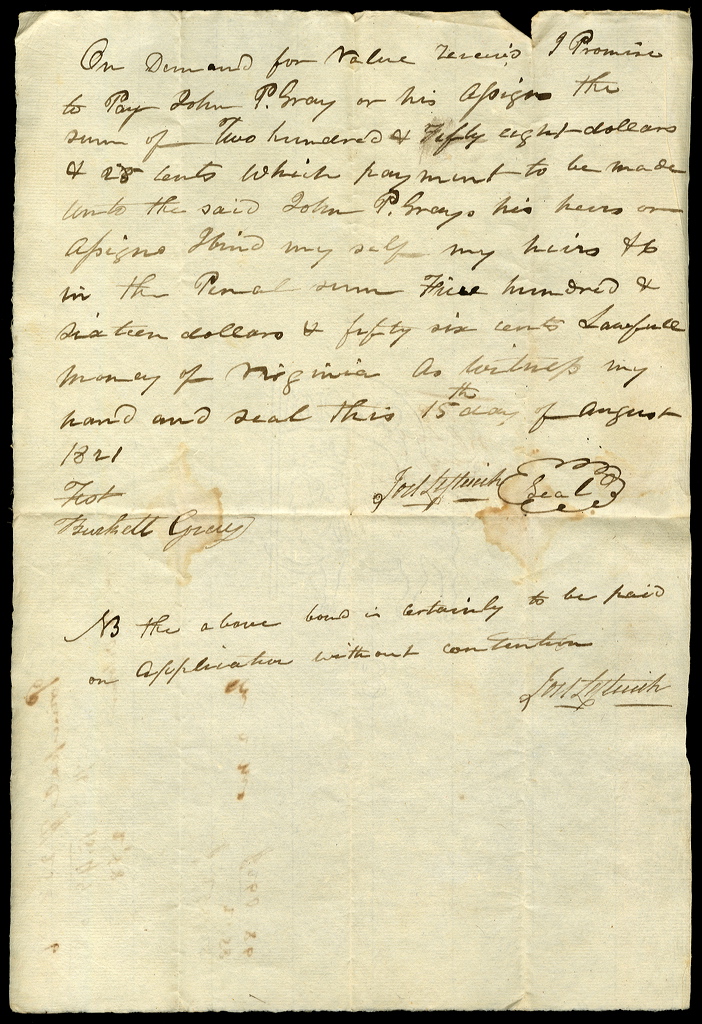 On Demand for Value Receivd I Promise
to Pay John P. Gray or his Assigns the
sum of Two hundred & Fifty eight dollars
& 28 cents Which payment to be made
unto the said John P. Grays his heirs or
Assigns I bind my self my heirs &c
in the Penal sum Five hundred &
sixteen dollars & fifty six cents Lawfull
money of Virginia As witness my
hand and seal this 15th day of August
1821
Test
Burkett Gray
Joel Leftwich Seal
NB the above bond is certainly to be paid
on Application without contention
Joel Leftwich